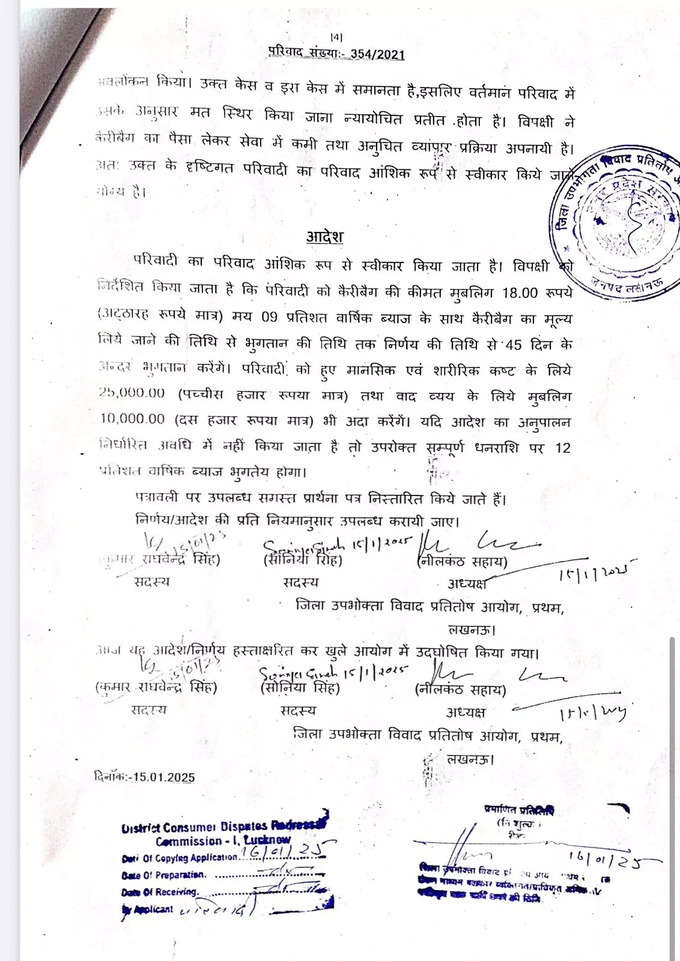 [4]
परिवाद संख्याः- 354/2021
अवलोकन किया। उक्त केस व इस केस में समानता है,इसलिए वर्तमान परिवाद में
उसके अनुसार मत स्थिर किया जाना न्यायोचित प्रतीत होता है। विपक्षी ने
कैरीबैग का पैसा लेकर सेवा में कमी तथा अनुचित व्यापार प्रक्रिया अपनायी है।
अतः उक्त के दृष्टिगत परिवादी का परिवाद आंशिक रूप से स्वीकार किये जाने
योग्य है।
जिला उपभोगता विवाद प्रतितोष
उत्तर प्रदेश सरकार
जनपद लखनऊ
आदेश
परिवादी का परिवाद आंशिक रूप से स्वीकार किया जाता है। विपक्षी को
निर्देशित किया जाता है कि परिवादी को कैरीबैग की कीमत मुबलिग 18.00 रूपये
(अट्ठारह रूपये मात्र) मय 09 प्रतिशत वार्षिक ब्याज के साथ कैरीबैग का मूल्य
लिये जाने की तिथि से भुगतान की तिथि तक निर्णय की तिथि से 45 दिन के
अन्दर भुगतान करेंगें। परिवादी को हुए मानसिक एवं शारीरिक कष्ट के लिये
25,000.00 (पच्चीस हजार रूपया मात्र) तथा वाद व्यय के लिये मुबलिग
10,000.00 (दस हजार रूपया मात्र) भी अदा करेंगें। यदि आदेश का अनुपालन
निर्धारित अवधि में नहीं किया जाता है तो उपरोक्त सम्पूर्ण धनराशि पर 12
प्रतिशत वार्षिक ब्याज भुगतेय होगा।
पत्रावली पर उपलब्ध समस्त प्रार्थना पत्र निस्तारित किये जाते हैं।
निर्णय/आदेश की प्रति नियमानुसार उपलब्ध करायी जाए।
15/01/25 Soniya Singh 15/1/2025
(कुमार राघवेन्द्र सिंह) (सोनिया सिंह) (नीलकंठ सहाय)
15/1/2025
सदस्य सदस्य अध्यक्ष
जिला उपभोक्ता विवाद प्रतितोष आयोग, प्रथम,
लखनऊ।
आज यह आदेश/निर्णय हस्ताक्षरित कर खुले आयोग में उदघोषित किया गया।
15/01/25 Soniya Singh 15/1/2025
(कुमार राघवेन्द्र सिंह) (सोनिया सिंह) (नीलकंठ सहाय)
सदस्य सदस्य अध्यक्ष
जिला उपभोक्ता विवाद प्रतितोष आयोग, प्रथम,
लखनऊ।
दिनॉकः-15.01.2025
District Consumer Disputes Redressal
Commission - I, Lucknow
Date Of Copying Application 16/01/25
Date Of Preparation.
Date Of Receiving.
by Applicant
प्रमाणित प्रतिलिपि
16/01/25
जिला उपभोक्ता विवाद